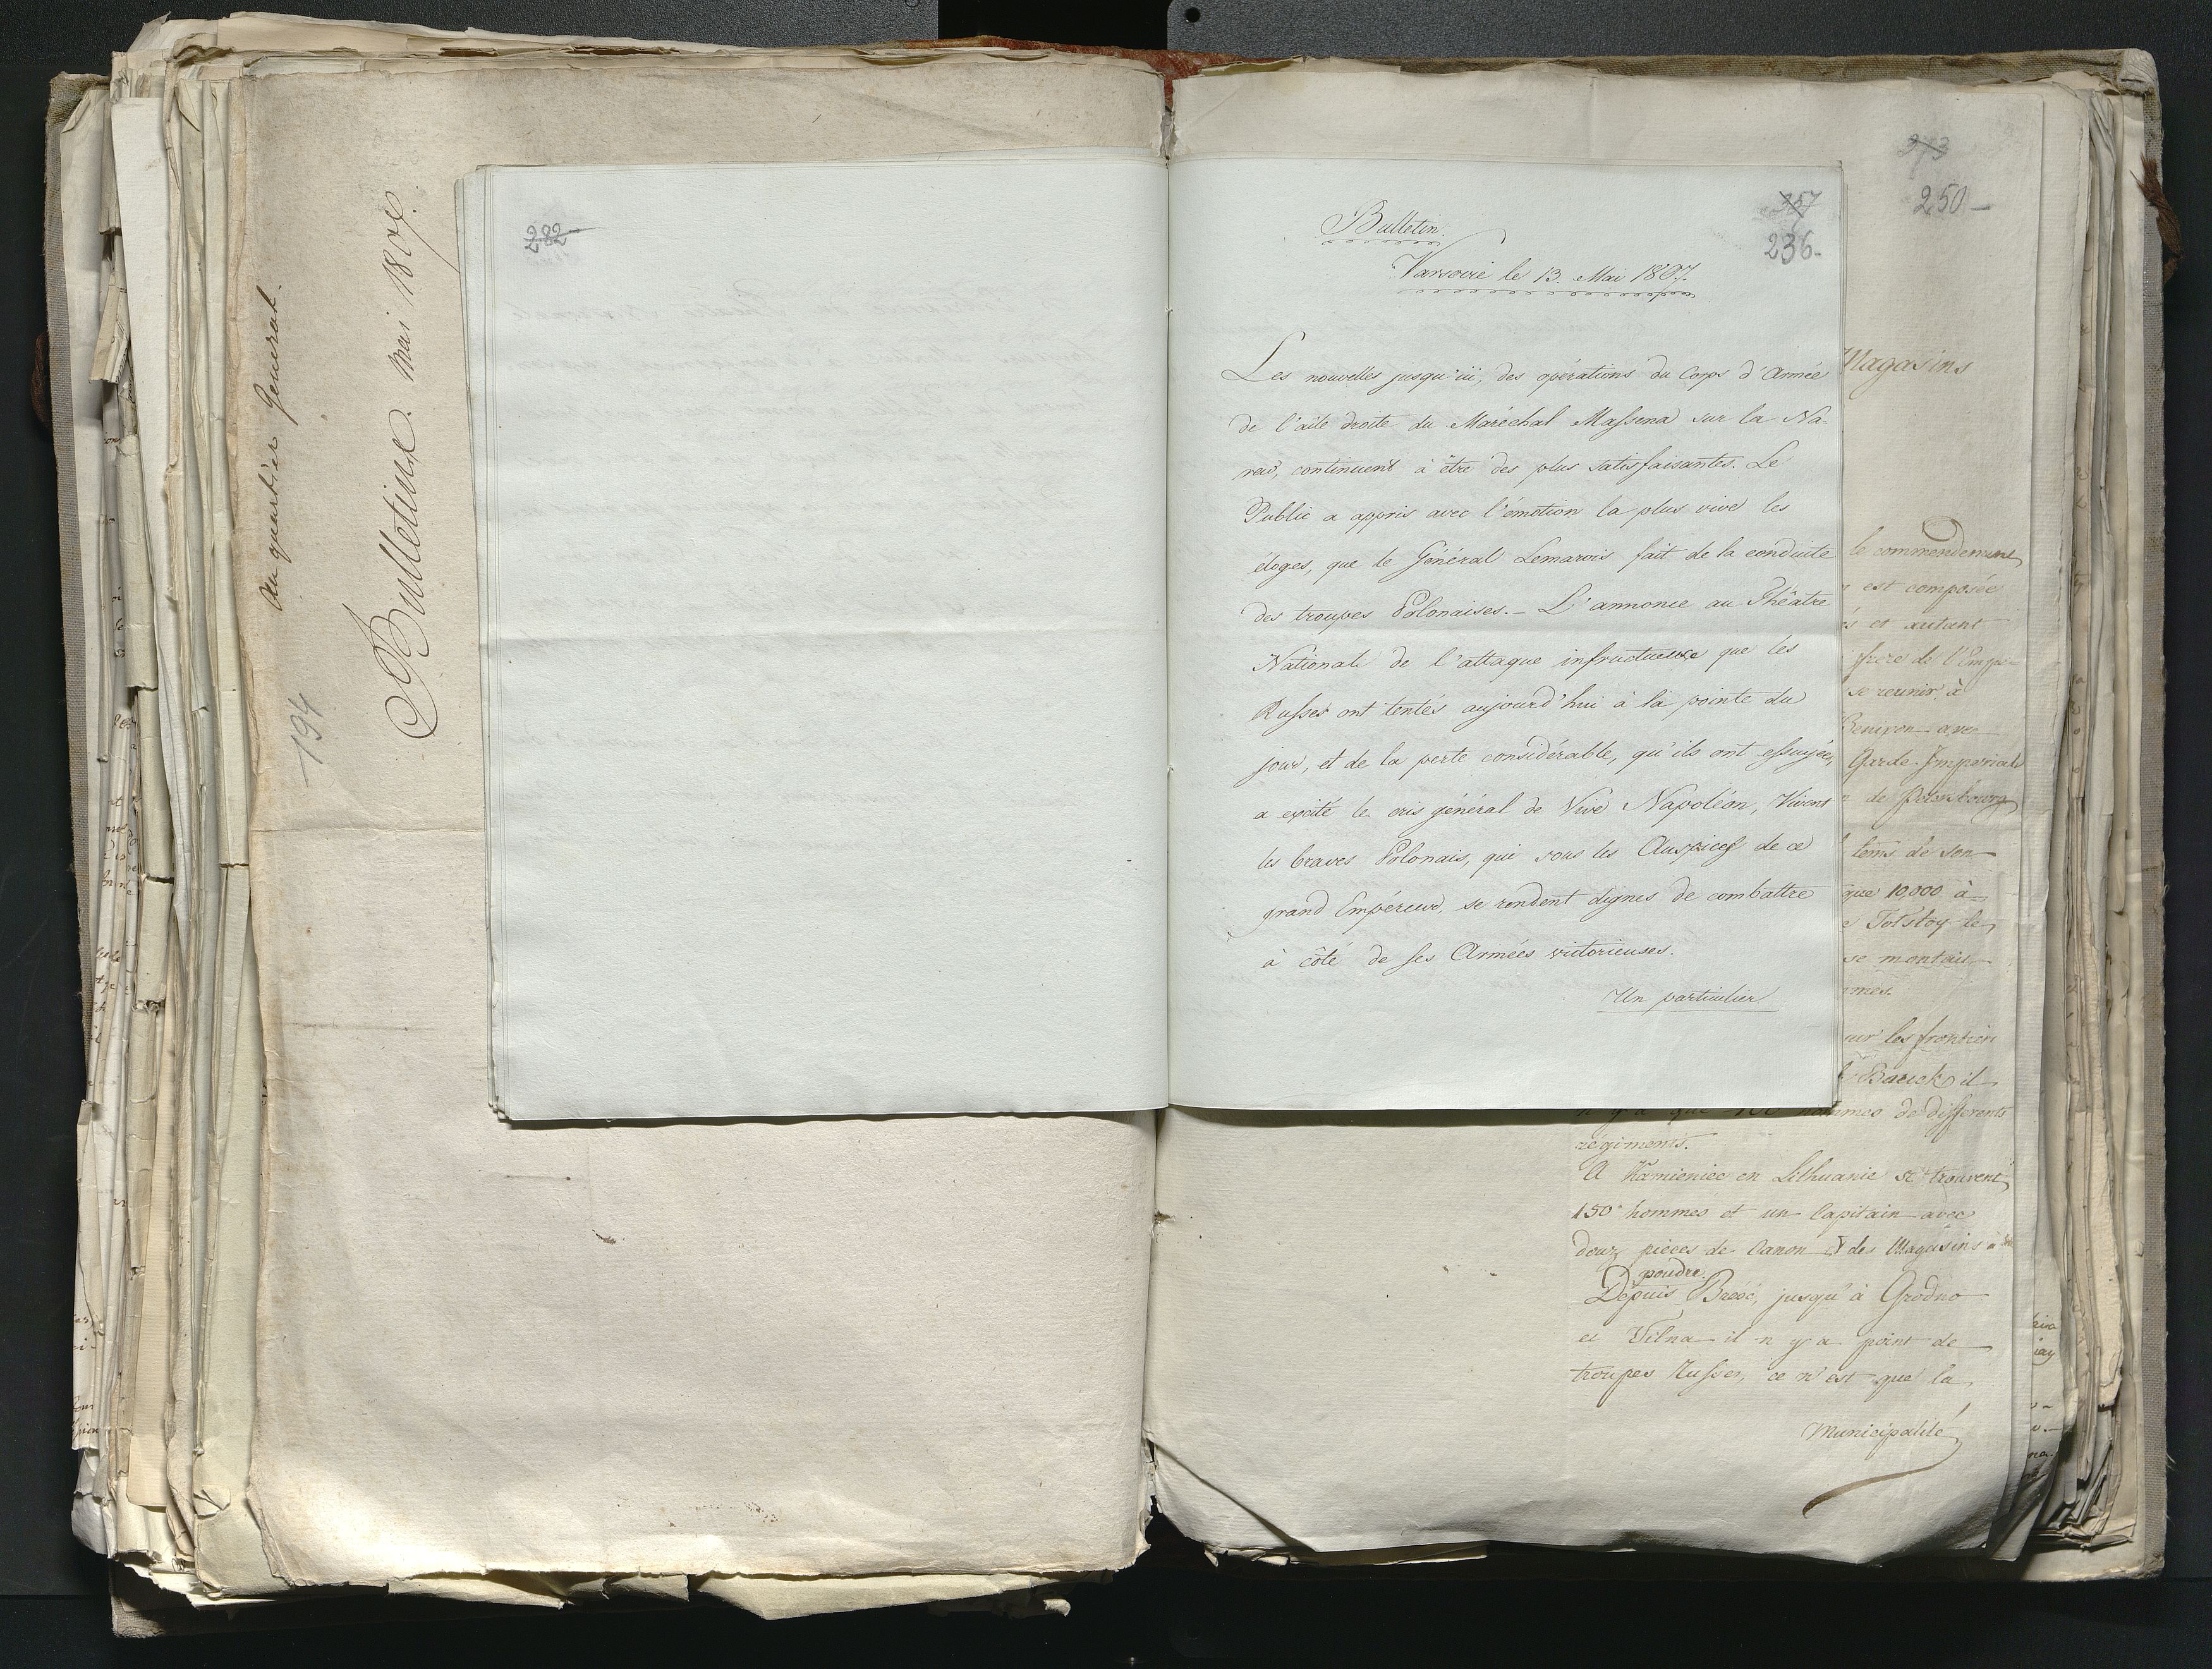 Au quartier General.
Bulletins. mai 1807.
194
282
Bulletin.
Varsovie le 13. Mai 1807.
257
236.
Les nouvelles jusqu'ici, des opérations du Corps d'Armée
de l'aile droite du Maréchal Massena sur la Na-
rew, continuent à être des plus satisfaisantes. Le
Public a appris avec l'émotion la plus vive les
éloges, que le Général Lemarois fait de la conduite
des troupes Polonaises. – L'annonce au Théatre
National de l'attaque infructueuse que les
Russes ont tentés aujourd'hui à la pointe du
jour, et de la perte considérable, qu'ils ont essuyées,
a excité le cris général de Vive Napoléon, Vivent
les braves Polonais, qui sous les Auspices de ce
grand Empéreur, se rendent dignes de combattre
à côté de ses Armées victorieuses.
Un particulier
273
250
Magasins
le commendement
est composée
et autant
frere de l'Empe-
se reunir à
avec
Garde Imperiale
de Petersbourg
tems de son
que 10,000 à
Tolstoy le
se montait
mes.
sur les frontieri
il
n'y a que hommes de differents
régiments.
A Kamieniec en Lithuanie se trouvent
150 hommes et un Capitain avec
deux pieces de Canon & des Magasins à
poudre.
Dépuis Bresc, jusqu'à Grodno
et Vilna il n'y a point de
troupes Russes, ce n'est que la
Municipalité